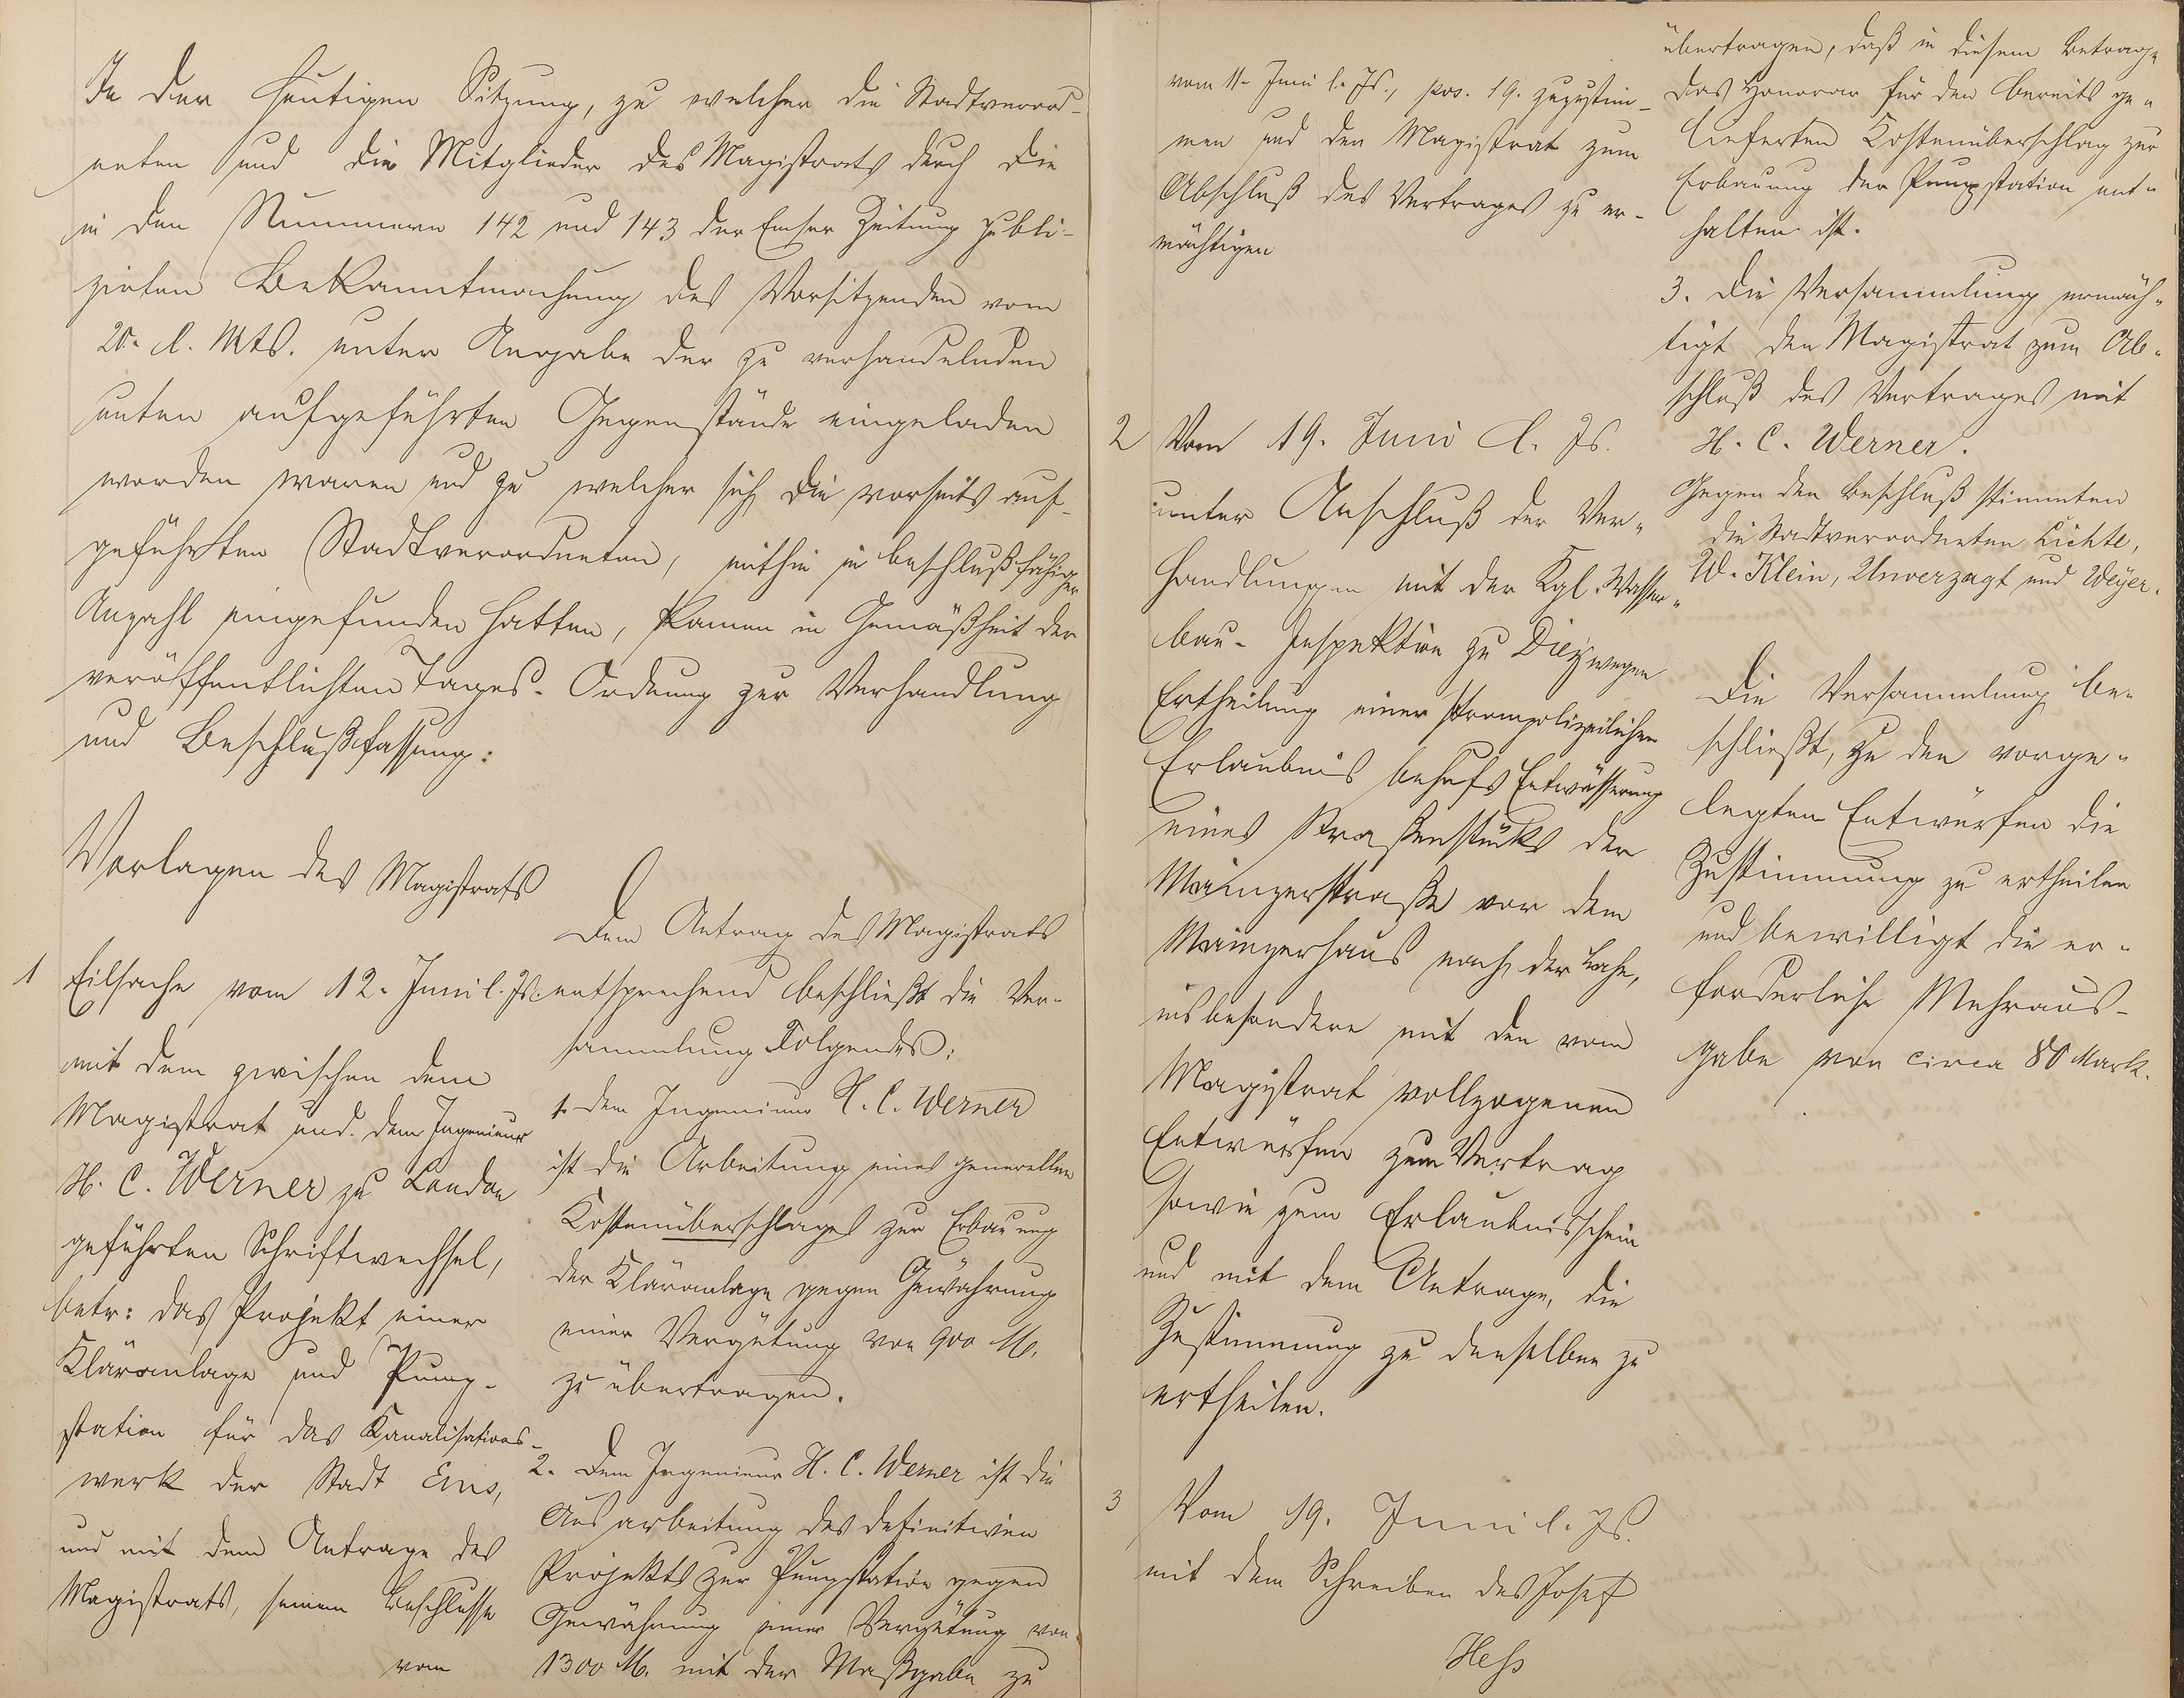 In der heutigen Sitzung, zu welcher die Stadtverord-
neten und die Mitglieder des Magistrats durch die
in den Nummern 142 und 143 der Emser Zeitung publi-
zirten Bekanntmachung des Vorsitzenden vom
20. d. Mts. unter Angabe der zu verhandelnden
unten aufgeführten Gegenstände eingeladen
worden waren und zu welcher sich die vorseits auf-
geführten Stadtverordneten, mithin in beschlußfähiger
Anzahl eingefunden hatten, kamen in Gemäßheit der
veröffentlichten Tages-Ordnung zur Verhandlung
und Beschlußfassung:
Vorlagen des Magistrats
1 Eilsache vom 12. Juni l. Js.
mit dem zwischen dem
Magistrat und dem Ingenieur
H. C. Werner zu
geführten Schriftwechsel,
betr: das Projekt einer
Kläranlage und Pump-
station für das Kanalisations-
werk der Stadt Ems,
und mit dem Antrage des
Magistrats, seinem Beschlusse
vom
Dem Antrag des Magistrats
entsprechend beschließt die Ver-
sammlung Folgendes:
1. Dem Ingenieur H. C. Werner
ist die Arbeitung eines generellen
Kostenüberschlages zur Erbauung
der Kläranlage gegen Gewährung
einer Vergütung von 900 M.
zu übertragen.
2. Dem Ingenieur H. C. Werner ist die
Ausarbeitung des definitiven
Projekts zur Pumpstation gegen
Gewährung einer Vergütung von
1300 M. mit der Maßgabe zu
vom 11. Juni l. Js., pos. 19. zuzustim-
men und den Magistrat zum
Abschluß des Vertrages zu er-
mächtigen
2 Vom 19. Juni l. Js.
unter Anschluß der Ver-
handlungen mit der Kgl. Wasser-
bau-Inspektion zu Diez wegen
Ertheilung einer strompolizeilichen
Erlaubnis behufs Entwässerung
eines Straßenstücks der
Mainzerstraße vor dem
Mainzerhaus nach der Lahn,
insbesondere mit den vom
Magistrat vollzogenen
Entwürfen zum Vertrag
sowie zum Erlaubnisschein
und mit dem Antrage, die
Zustimmung zu denselben zu
ertheilen.
3 Vom 19. Juni l. Js.
mit dem Schreiben des Josef
Hess
übertragen, daß in diesem Betrage
das Honorar für den bereits ge-
lieferten Kostenüberschlag zur
Erbauung der Pumpstation ent-
halten ist.
3. Die Versammlung ermäch-
tigt den Magistrat zum Ab-
schluß des Vertrages mit
H. C. Werner.
Gegen den Beschluß stimmten
die Stadtverordneten Lichte,
W. Klein, Unverzagt und Weyer.
Die Versammlung be-
schließt, zu den vorge-
legten Entwürfen die
Zustimmung zu ertheilen
und bewilligt die er-
forderliche Mehraus-
gabe von circa 80 Mark.